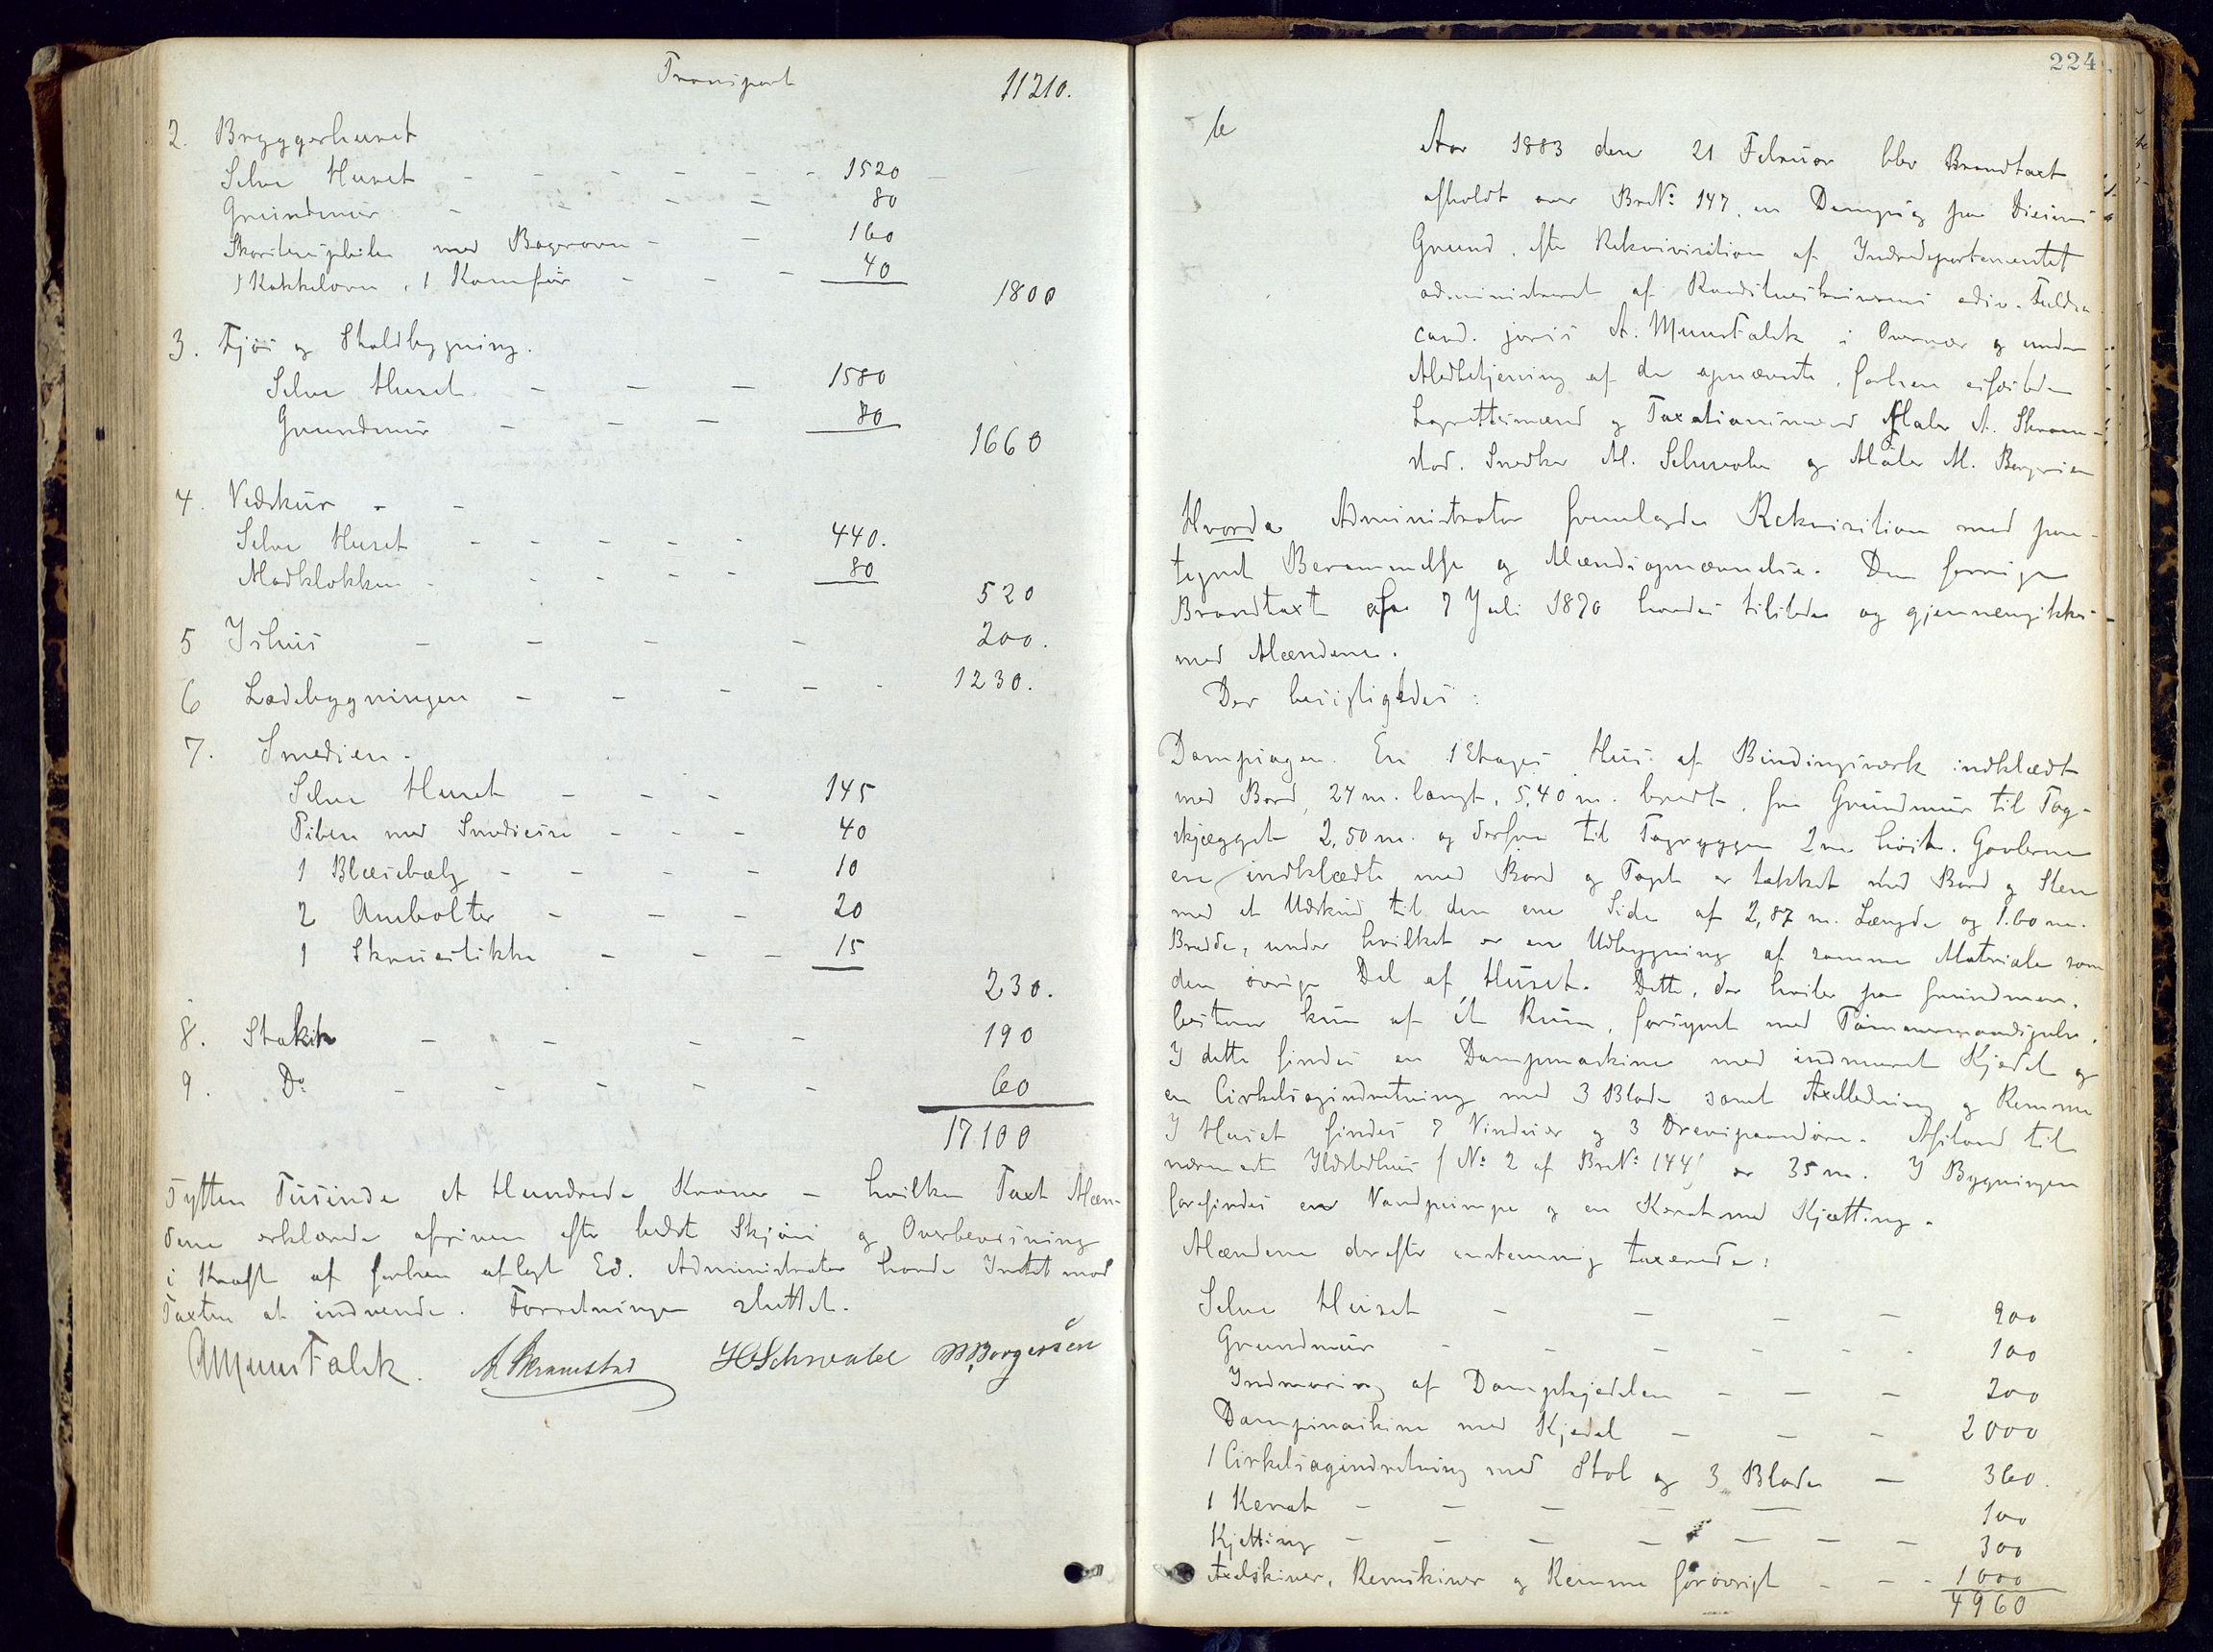 Transport 11210.
2. Bryggerhuset
Selve Huset - - - - - - 1520
Grundmur - - - - 80
Skorstenspibe med Bagerovn - - 160
1 Kakkelovn, 1 Komfür - - - 40
1800
3. Fjøs og Staldbygning.
Selve Huset - - - 1580
Grundmur - - - 80
1660
4. Vedskur - -
Selve Huset - - - - - 440.
Madklokken - - - - - 80
520
5 Ishus - - - - 200.
6 Ladebygningen - - - - - 1230.
7. Smedien -
Selve Huset - - - 145
Piben med Smedieesse - - - 40
1 Blæsebælg - - - - 10
2 Ambolter - - - 20
1 Skruestikke - - - 15
230.
8. Stakit - - - - 190
9. Do - - - - - 60
17100
Sytten Tusinde et Hundrede Kroner - hvilken Taxt Mæn-
dene erklærede afgiven efter bedst Skjøn og Overbevisning
i Kraft af forhen aflagt Ed. Administrator havde Intet mod
Taxten at indvende. Forretningen sluttet.
AMunsFalck. A Skramstad HSchwabe MBorgersen
224
6
Aar 1883 den 21 Februar blev Brandtaxt
afholdt over BrNo 147. en Dampsag paa
Grund. efter Rekvirisition af Indredepartementet
administreret af
cand. juris A. MunsFalck i Overvær og under
Medbetjening af de opnævnte, forhen edfæstede
Lagrettesmænd og Taxationsmænd Maler A. Skram-
stad. Snedker H. Schwabe og Maler M. Borgersen
Hvorda Administrator fremlagde Rekvisition med paa-
tegnet Berammelse og Mændsopnævnelse. Den forrige
Brandtaxt afh 7 Juli 1870 havdes tilstede og gjennemgikkes
med Mændene.
Der besigtigedes:
Dampsagen. En 1 Etages Hus af Bindingsværk indklædt
med Bord, 24 m. langt, 5,40 m. bredt, fra Grundmur til Tag-
skjægget 2,50 m. og derfra til Tagryggen 2 m. høit. Gavlerne
ere indklædte med Bord og Taget er takket med Bord og Sten
med et Udskud til den ene Side af 2,87 m. Længde og 1.60 m.
Bredde, under hvilket er en Udbygning af samme Materiale som
den øvrige Del af Huset. Dette, der hviler paa Grundmur,
bestaar kun af ét Rum, forsynet med Tømmermandsgulv.
I dette findes en Dampmaskine med indmuret Kjedel og
en Cirkelsagindretning med 3 Blade samt Axelledning og Remme
I Huset findes 7 Vinduer og 3 Drevspaandøre. Afstand til
nærmeste Ildstedhus (No 2 af BrNo 144) er 35 m. I Bygningen
forefindes en Vandpumpe og en Kerat med Kjætting.
Mændene derefter enstemmig taxerede:
Selve Huset - - - - 900
Grundmur - - - - - - 100
Indmuring af Dampkjedelen - - - 200
Dampmaskine med Kjedel - - - 2000
1 Cirkelsagindretning med Stol og 3 Blade - 360.
1 Kerat - - - - - 100
Kjetting - - - - - - - 300
Axelskiver, Remskiver og Remme forøvrigt - - - 1000
4960